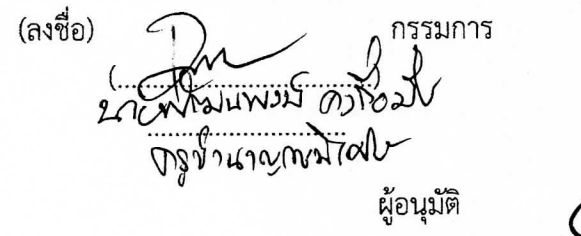 (ลงชื่อ) กรรมการ
(....................................
นาย
....................................
ครูชำนาญการพิเศษ
ผู้อนุมัติ